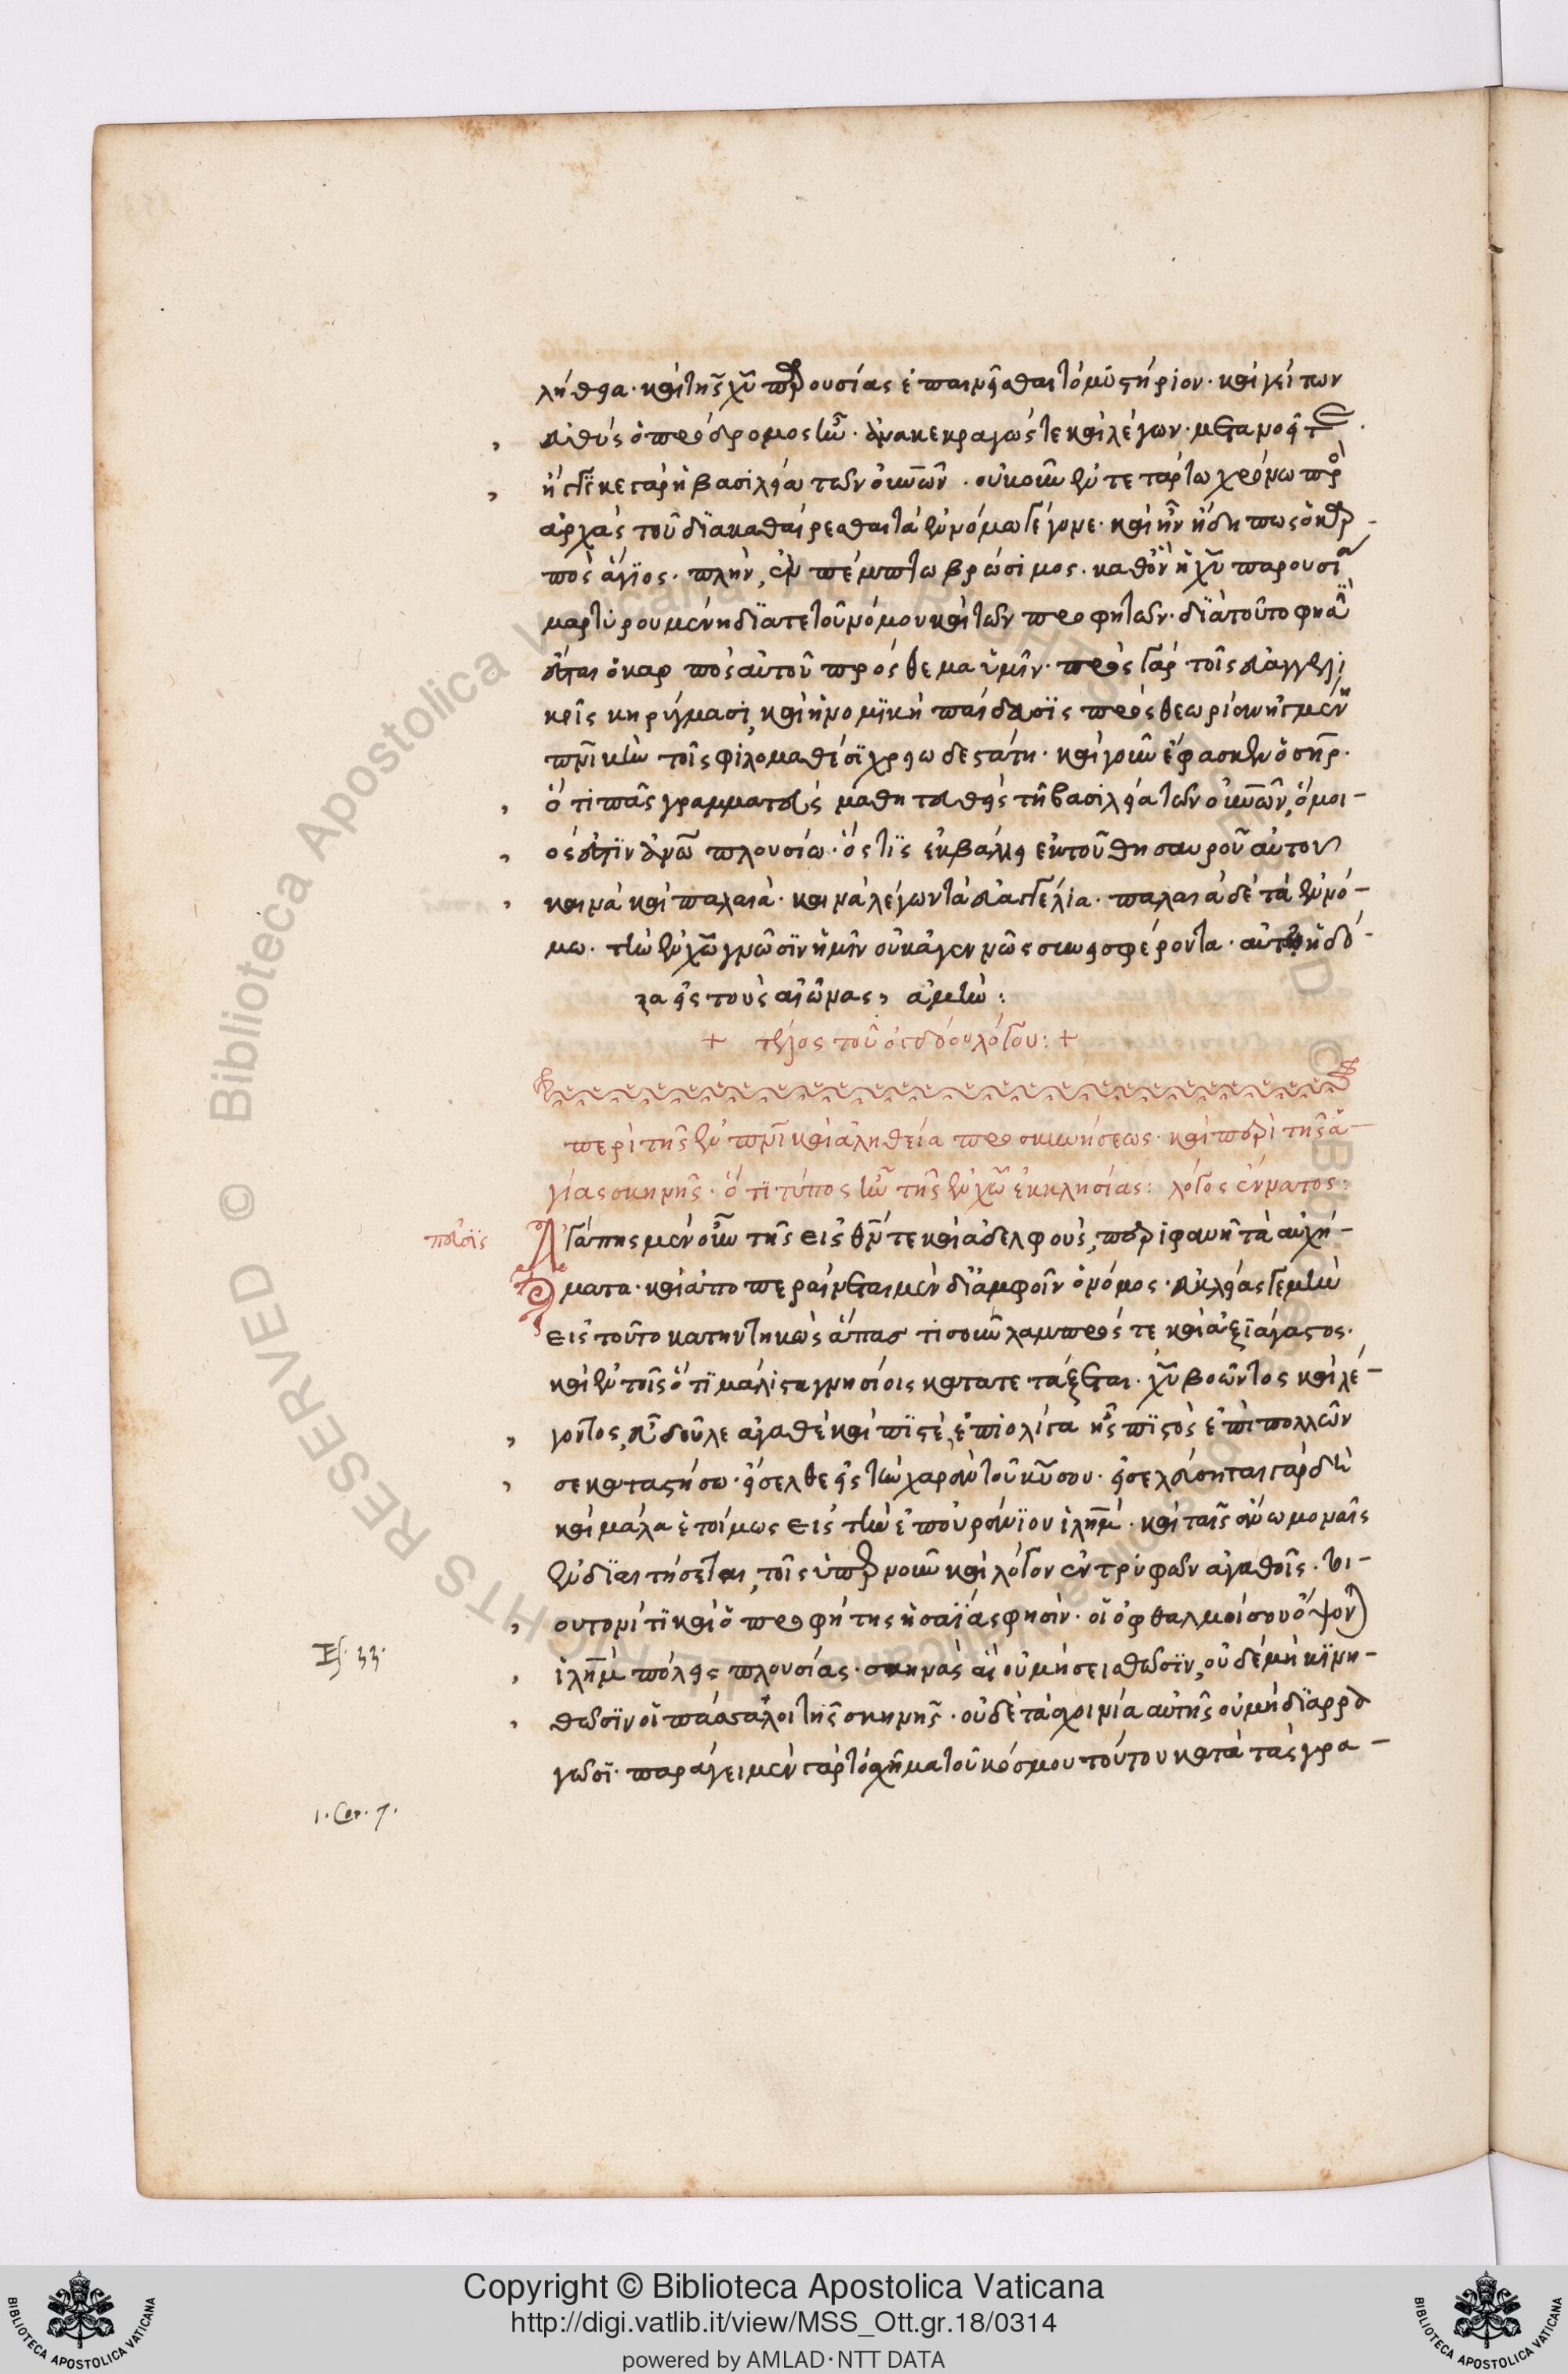 λήθεια· καὶ τῆς χῦ παρουσίας ἐπαινεῖσθαι τὸ μυστήριον· καὶ γείτων
εὐθὺς ὁ πρόδρομος ἦν· ἀνακεκραγώς τε καὶ λέγων· μετανοεῖτε·
ἤγγικε γὰρ ἡ βασιλεία τῶν οὐνῶν· οὐκοῦν ἐν τετάρτω χρόνω πρὸ
ἀρχὰς τοῦ διακαθαίρεσθαι τὰ ἐν νόμω γέγονε· καὶ ἦν ἤδη πως ὁ καρ-
πὸς ἅγιος· πλὴν, ἐν πέμπτω βρώσιμος· καθ' ὃν ἡ χῦ παρουσία
μαρτυρουμένη διά τε τοῦ νόμου καὶ τῶν προφητῶν· διὰ τοῦτο φησὶν
ἔσται ὁ καρπὸς αὐτοῦ πρόσθεμα ὑμῖν· πρὸς γὰρ τοῖς εὐαγγελι
κοῖς κηρύγμασι, καὶ ἡ νομικὴ παίδευσις πρὸς θεωρίαν ἠγμένη
πνικὴν τοῖς φιλομαθέσι χρειωδεστάτη· καὶ γοῦν ἔφασκεν ὁ σηρ·
ὅτι πᾶς γραμματεὺς μαθητευθεὶς τῆ βασιλεία τῶν οὐνῶν, ὅμοι-
ός ἐστιν ἀνω πλουσίω· ὅστις ἐκβάλλει ἐκ τοῦ θησαυροῦ αὐτοῦ
καινὰ καὶ παλαιά· καινὰ λέγων τὰ εὐαγγέλια· παλαιὰ δὲ τὰ ἐν νό-
μω· τὴν ἐν χῶ γνῶσιν ἡμῖν οὐκ ἀγεννῶς συνεισφέροντα· αὐτῶ ἡ δό-
ξα εἰς τοὺς αἰῶνας, ἀμήν:
+ τέλος τοῦ ὀγδόου λόγου: +
περὶ τῆς ἐν πνι καὶ ἀληθεία προσκυνήσεως· καὶ περὶ τῆς ἁ-
γίας σκηνῆς· ὅτι τύπος ἦν τῆς ἐν χῶ ἐκκλησίας: λόγος ἔννατος:
Ἀγάπης μὲν οὖν τῆς εἰς θν τε καὶ ἀδελφοὺς, περιφανῆ τὰ αὐχή-
ματα· καὶ ἀποπεραίνεται μὲν δι' ἀμφοῖν ὁ νόμος· εὐκλεὰς γεμὴν
εἰς τοῦτο κατηντηκὼς ἅπας τις οὖν λαμπρός τε καὶ ἀξιάγαστος·
καὶ ἐν τοῖς ὅτι μάλιστα γνησίοις κατατετάξεται· χῦ βοῶντος καὶ λέ-
γοντος, εὖ δοῦλε ἀγαθὲ καὶ πιστέ, ἐπὶ ὀλίγα ἦς πιστὸς ἐπὶ πολλῶν
σε καταστήσω· εἴσελθε εἰς τὴν χαρὰν τοῦ κῦ σου· εἰσελάσηται γὰρ δὴ
καὶ μάλα ἑτοίμως εἰς τὴν ἐπουράνιον ἱλημ· καὶ ταῖς ἄνω μοναῖς
ἐνδιαιτήσεται, τοῖς ὑπὲρ νοῦν καὶ λόγον ἐντρυφῶν ἀγαθοῖς· τοι-
οῦτον τι καὶ ὁ προφήτης ἡσαΐας φησίν· οἱ ὀφθαλμοί σου ὄψονται
ἱλημ πόλις πλουσίας· σκηνὰς αἳ οὐ μὴ σεισθῶσιν, οὐδὲ μὴ κινη-
θῶσιν οἱ πάσσαλοι τῆς σκηνῆς· οὐδὲ τὰ σχοινία αὐτῆς οὐ μὴ διαρρα
γῶσι· παράγει μὲν γὰρ τὸ σχῆμα τοῦ κόσμου τούτου κατὰ τὰς γρα-
Es. 33.
1. Cor. 7.
Copyright © Biblioteca Apostolica Vaticana
http://digi.vatlib.it/view/MSS_Ott.gr.18/0314
powered by AMLAD·NTT DATA
BIBLIOTECA APOSTOLICA VATICANA
BIBLIOTECA APOSTOLICA VATICANA